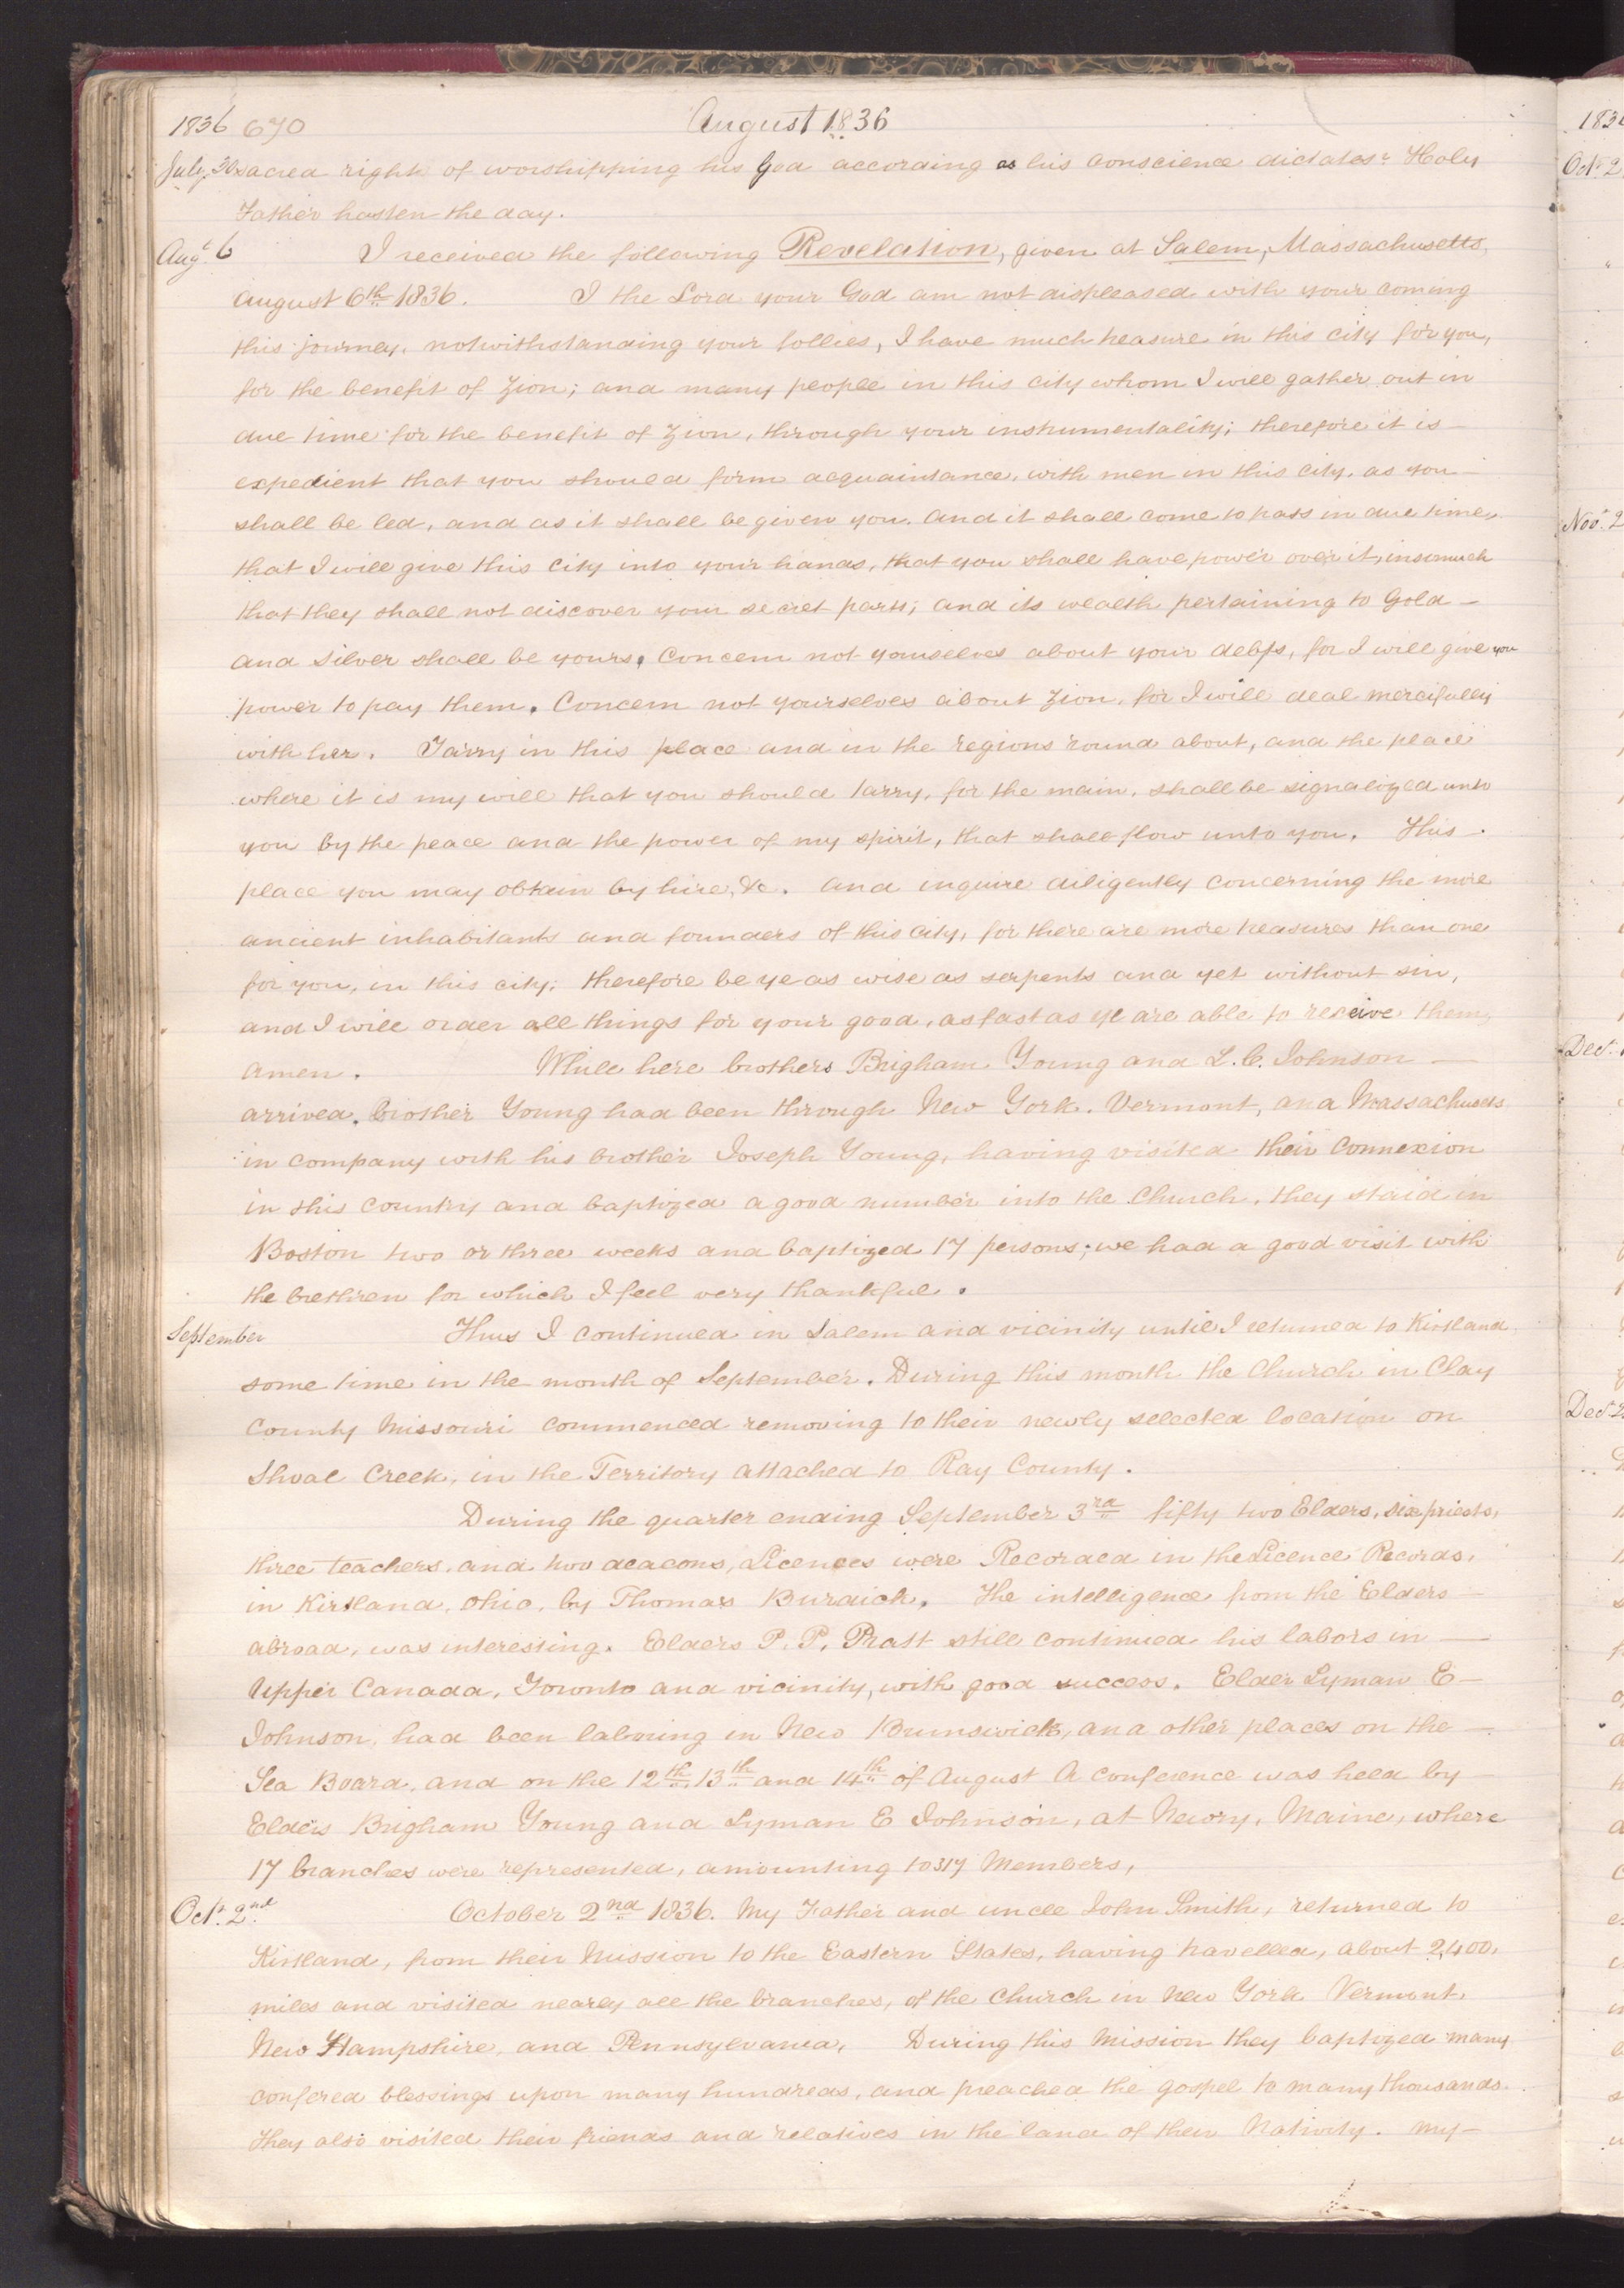 1836 670 August 1836
July 30 sacred right of worshipping his God according as his conscience dictates. Holy
Father hasten the day.
Augt. 6 I received the following Revelation, given at Salem, Massachusetts,
August 6th 1836. I the Lord your God am not displeased with your coming
this journey, notwithstanding your follies, I have much treasure in this city for you,
for the benefit of Zion; and many people in this city whom I will gather out in
due time for the benefit of Zion, through your instrumentality; therefore it is
expedient that you should form acquaintance, with men in this city, as you
shall be led, and as it shall be given you. And it shall come to pass in due time,
that I will give this city into your hands, that you shall have power over it, insomuch
that they shall not discover your secret parts; and its wealth pertaining to Gold
and Silver shall be yours. Concern not yourselves about your debts, for I will give you
power to pay them. Concern not yourselves about Zion, for I will deal mercifully
with her. Tarry in this place and in the regions round about, and the place
where it is my will that you should tarry, for the main, shall be signalized unto
you by the peace and the power of my spirit, that shall flow unto you. This
place you may obtain by hire, &c. And inquire diligently concerning the more
ancient inhabitants and founders of this city, for there are more treasures than one
for you, in this city; therefore be ye as wise as serpents and yet without sin,
and I will order all things for your good, as fast as ye are able to receive them,
Amen. While here brothers Brigham Young and L. E. Johnson
arrived. brother Young had been through New York, Vermont, and Massachusets
in company with his brother Joseph Young, having visited their connexion
in this country and baptized a good number into the Church, they staid in
Boston two or three weeks and baptized 17 persons; we had a good visit with
the brethren for which I feel very thankful.
September Thus I continued in Salem and vicinity until I returned to Kirtland
some time in the month of September. During this month the Church in Clay
County Missouri commenced removing to their newly selected location on
Shoal Creek, in the Territory attached to Ray County.
During the quarter ending September 3rd fifty two Elders, six priests,
three teachers, and two deacons, Licences were Recorded in the Licence Records,
in Kirtland, Ohio, by Thomas Burdick. The intelligence from the Elders
abroad, was interesting. Elders P. P. Pratt still continued his labors in
Upper Canada, Toronto and vicinity, with good success. Elder Lyman E
Johnson, had been laboring in New Brunswick, and other places on the
Sea Board, and on the 12th, 13th and 14th of August A conference was held by
Elders Brigham Young and Lyman E Johnson, at Newry, Maine, where
17 branches were represented, amounting to 317 Members,
Oct. 2nd October 2nd 1836. My Father and uncle John Smith, returned to
Kirtland, from their Mission to the Eastern States, having travelled, about 2,400,
miles and visited nearly all the branches, of the Church in New York Vermont,
New Hampshire, and Pennsylvania, During this Mission they baptized many
confered blessings upon many hundreds, and preached the gospel to many thousands.
They also visited their friends and relatives in the land of their Nativity. My
183
Oct. 2
Nov. 2
Dec.
Dec. 2